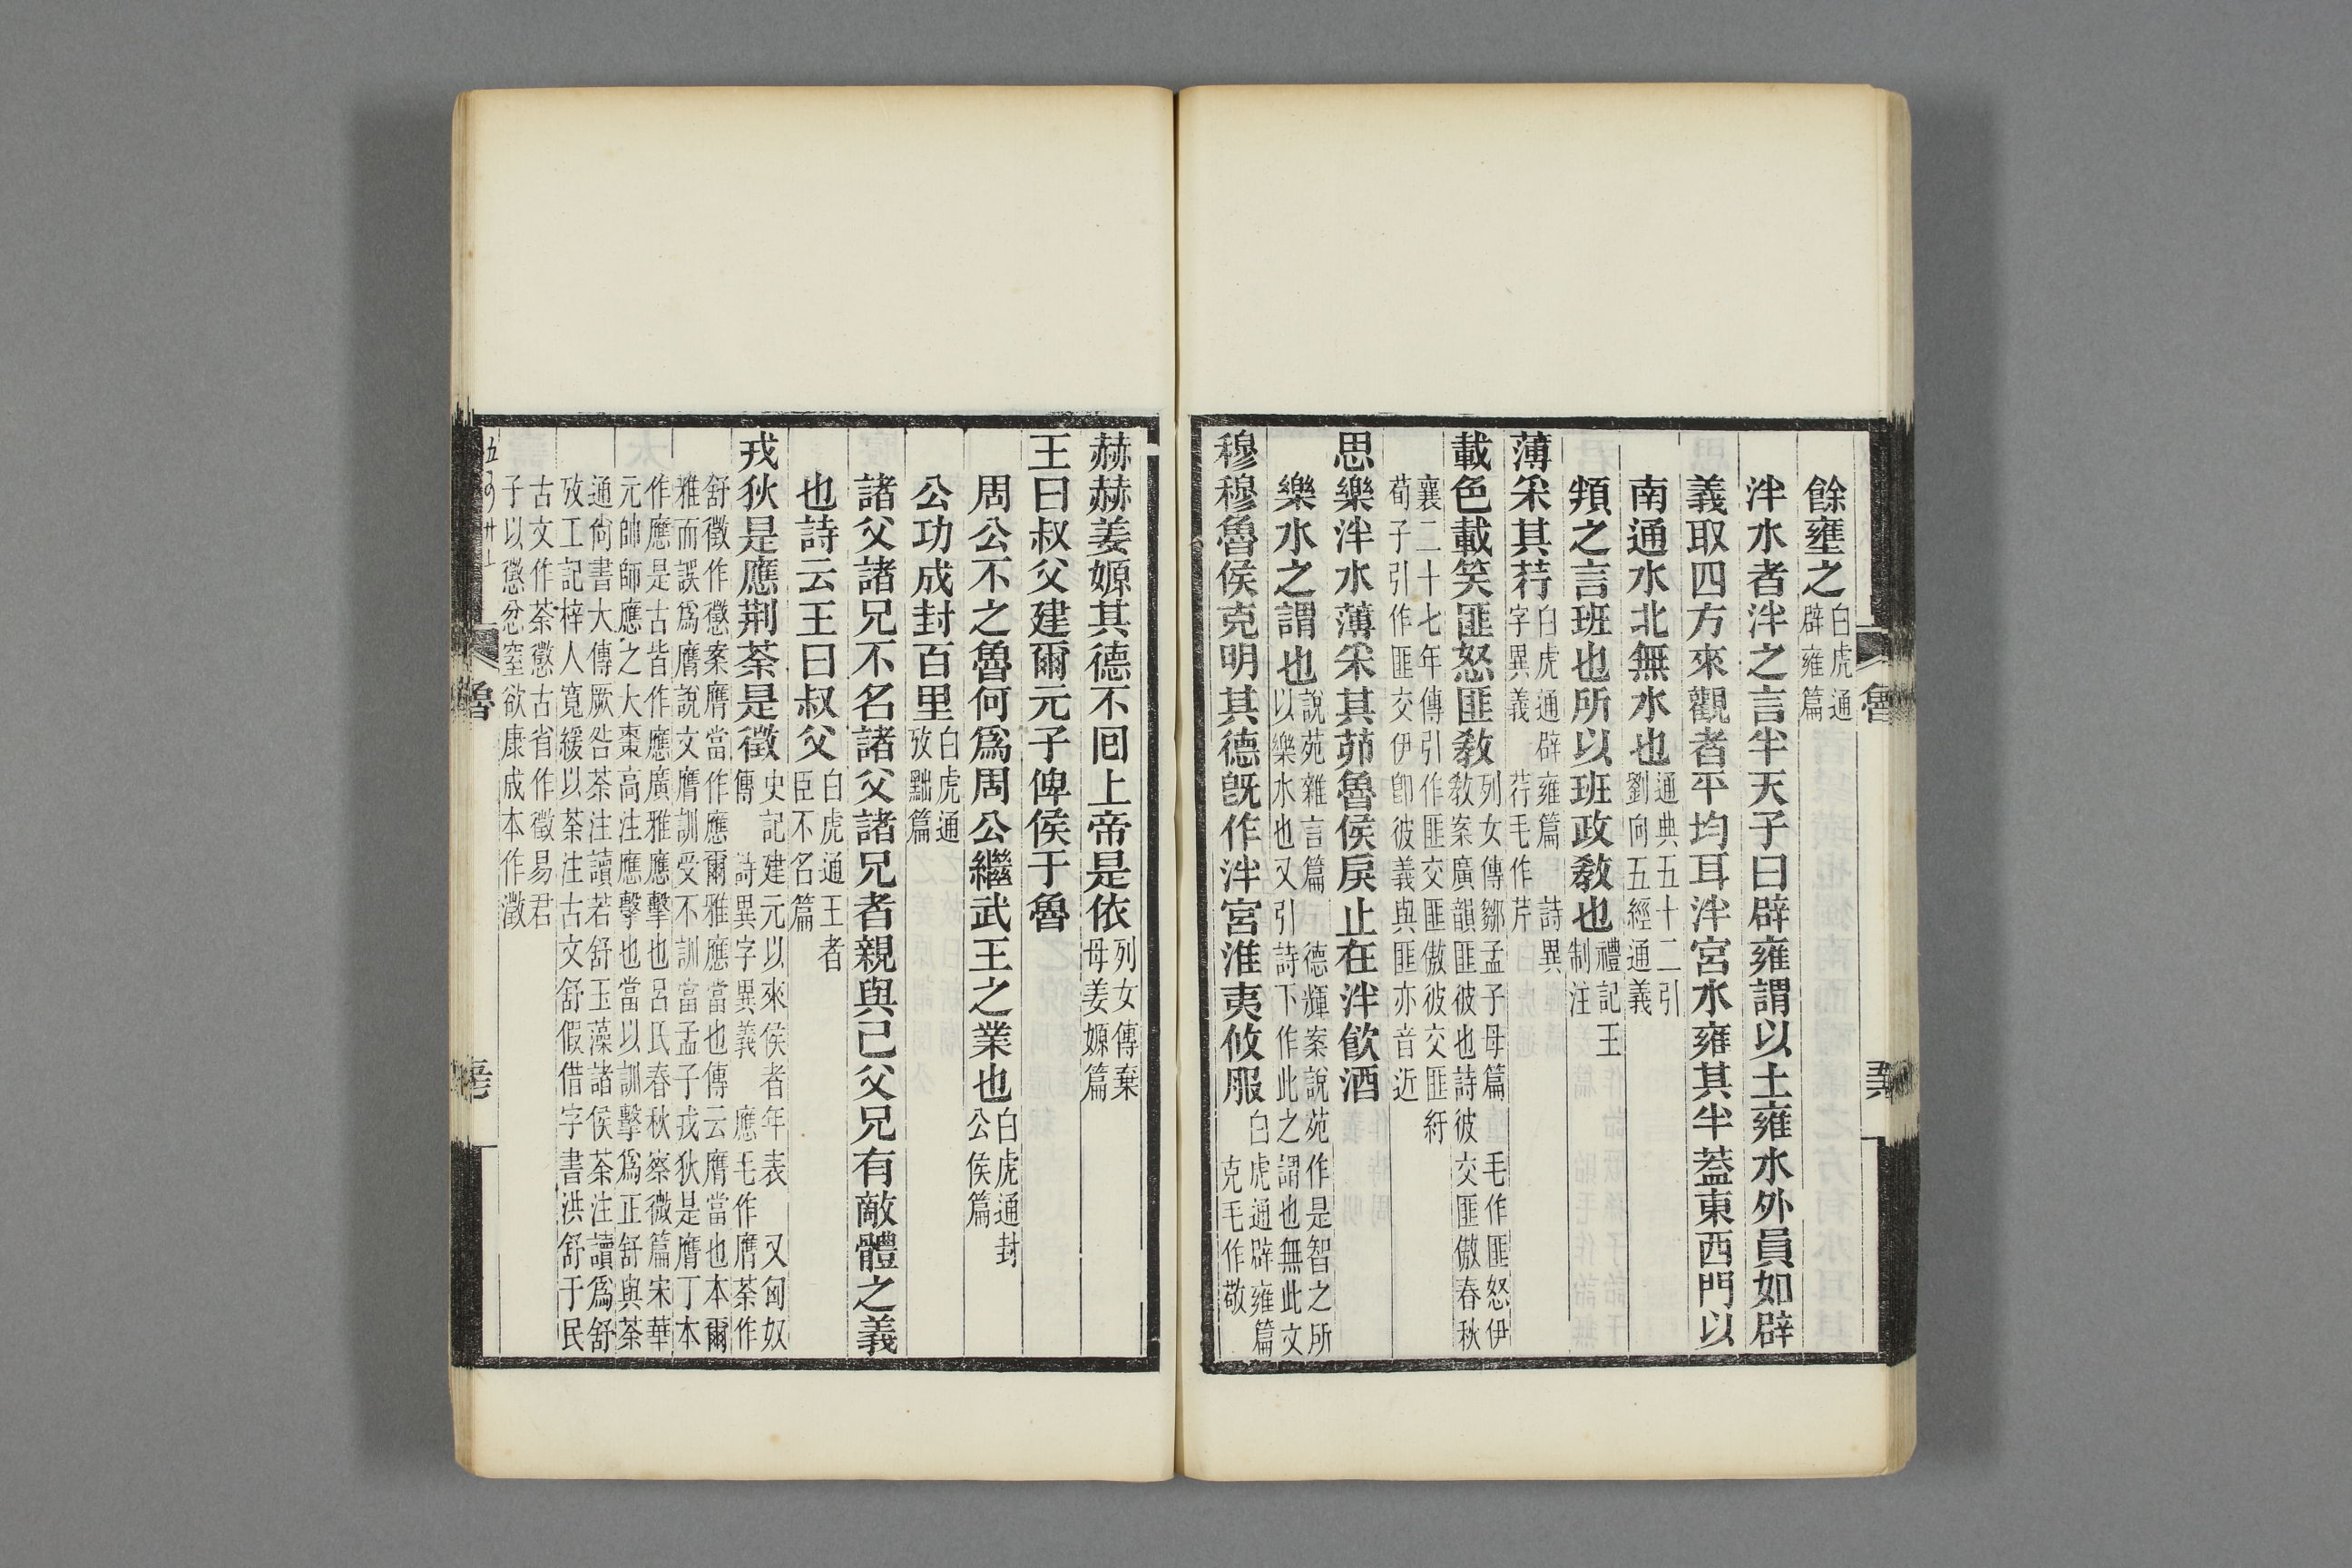 餘壅之白虎通辟雍篇
泮水者泮之言半天子曰辟雍謂以土雍水外員如辟
義取四方來觀者平均耳泮宮水雍其半葢東西門以
南通水北無水也通典五十二引劉向五經通義
頖之言班也所以班政敎也禮記王制注
薄采其荇白虎通辟雍篇 詩異字異義 荇毛作芹
載色載笑匪怒匪敎列女傳鄒孟子母篇 毛作匪怒伊敎案廣韻匪彼也詩彼交匪傲春秋
襄二十七年傳引作匪交匪傲彼交匪紓荀子引作匪交伊卽彼義與匪亦音近
思樂泮水薄采其茆魯侯戾止在泮飮酒
樂水之謂也說苑雜言篇 德輝案說苑作是智之所以樂水也又引詩下作此之謂也無此文
穆穆魯侯克明其德旣作泮宮淮夷攸服白虎通辟雍篇 克毛作敬
魯
赫赫姜嫄其德不回上帝是依列女傳棄母姜嫄篇
王曰叔父建爾元子俾侯于魯
周公不之魯何爲周公繼武王之業也白虎通封公侯篇
公功成封百里白虎通攷黜篇
諸父諸兄不名諸父諸兄者親與己父兄有敵體之義
也詩云王曰叔父白虎通王者臣不名篇
戎狄是應荆荼是徵史記建元以來侯者年表 又匈奴傳 詩異字異義 應毛作膺荼作
舒徵作懲案膺當作應爾雅應當也傳云膺當也本爾雅而誤爲膺說文膺訓受不訓當孟子戎狄是膺丁本
作應是古皆作應廣雅應擊也呂氏春秋察微篇宋華元帥師應之大棗高注應擊也當以訓擊爲正舒與荼
通尙書大傳厥咎荼注讀若舒玉藻諸侯荼注讀爲舒攷工記梓人寬緩以荼注古文舒假借字書洪舒于民
古文作荼懲古省作徵易君子以懲忿窒欲康成本作澂
魯